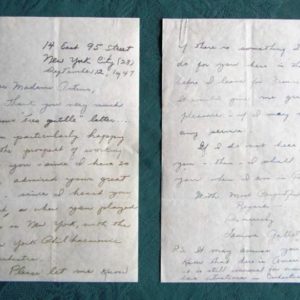 14 East 95 Street
New York City (28)
September 12, 1947
Madame
Thank you very much
your "très gentille" letter...
particularly happy
the prospect of working
you - since I have so
admired your great
since I heard you
when you played
in New York, with the
York Philharmonic
Orchestra.
Please let me know
if there is something I
do for you here in the
before I leave for
It would give me great
pleasure if I may
any service.
If I do not hear
you - then - I shall
you when I am in
With Most
Regards
Sincerely
P.S. It may amuse you
know that here in America
it is still unusual for
in Orchestras